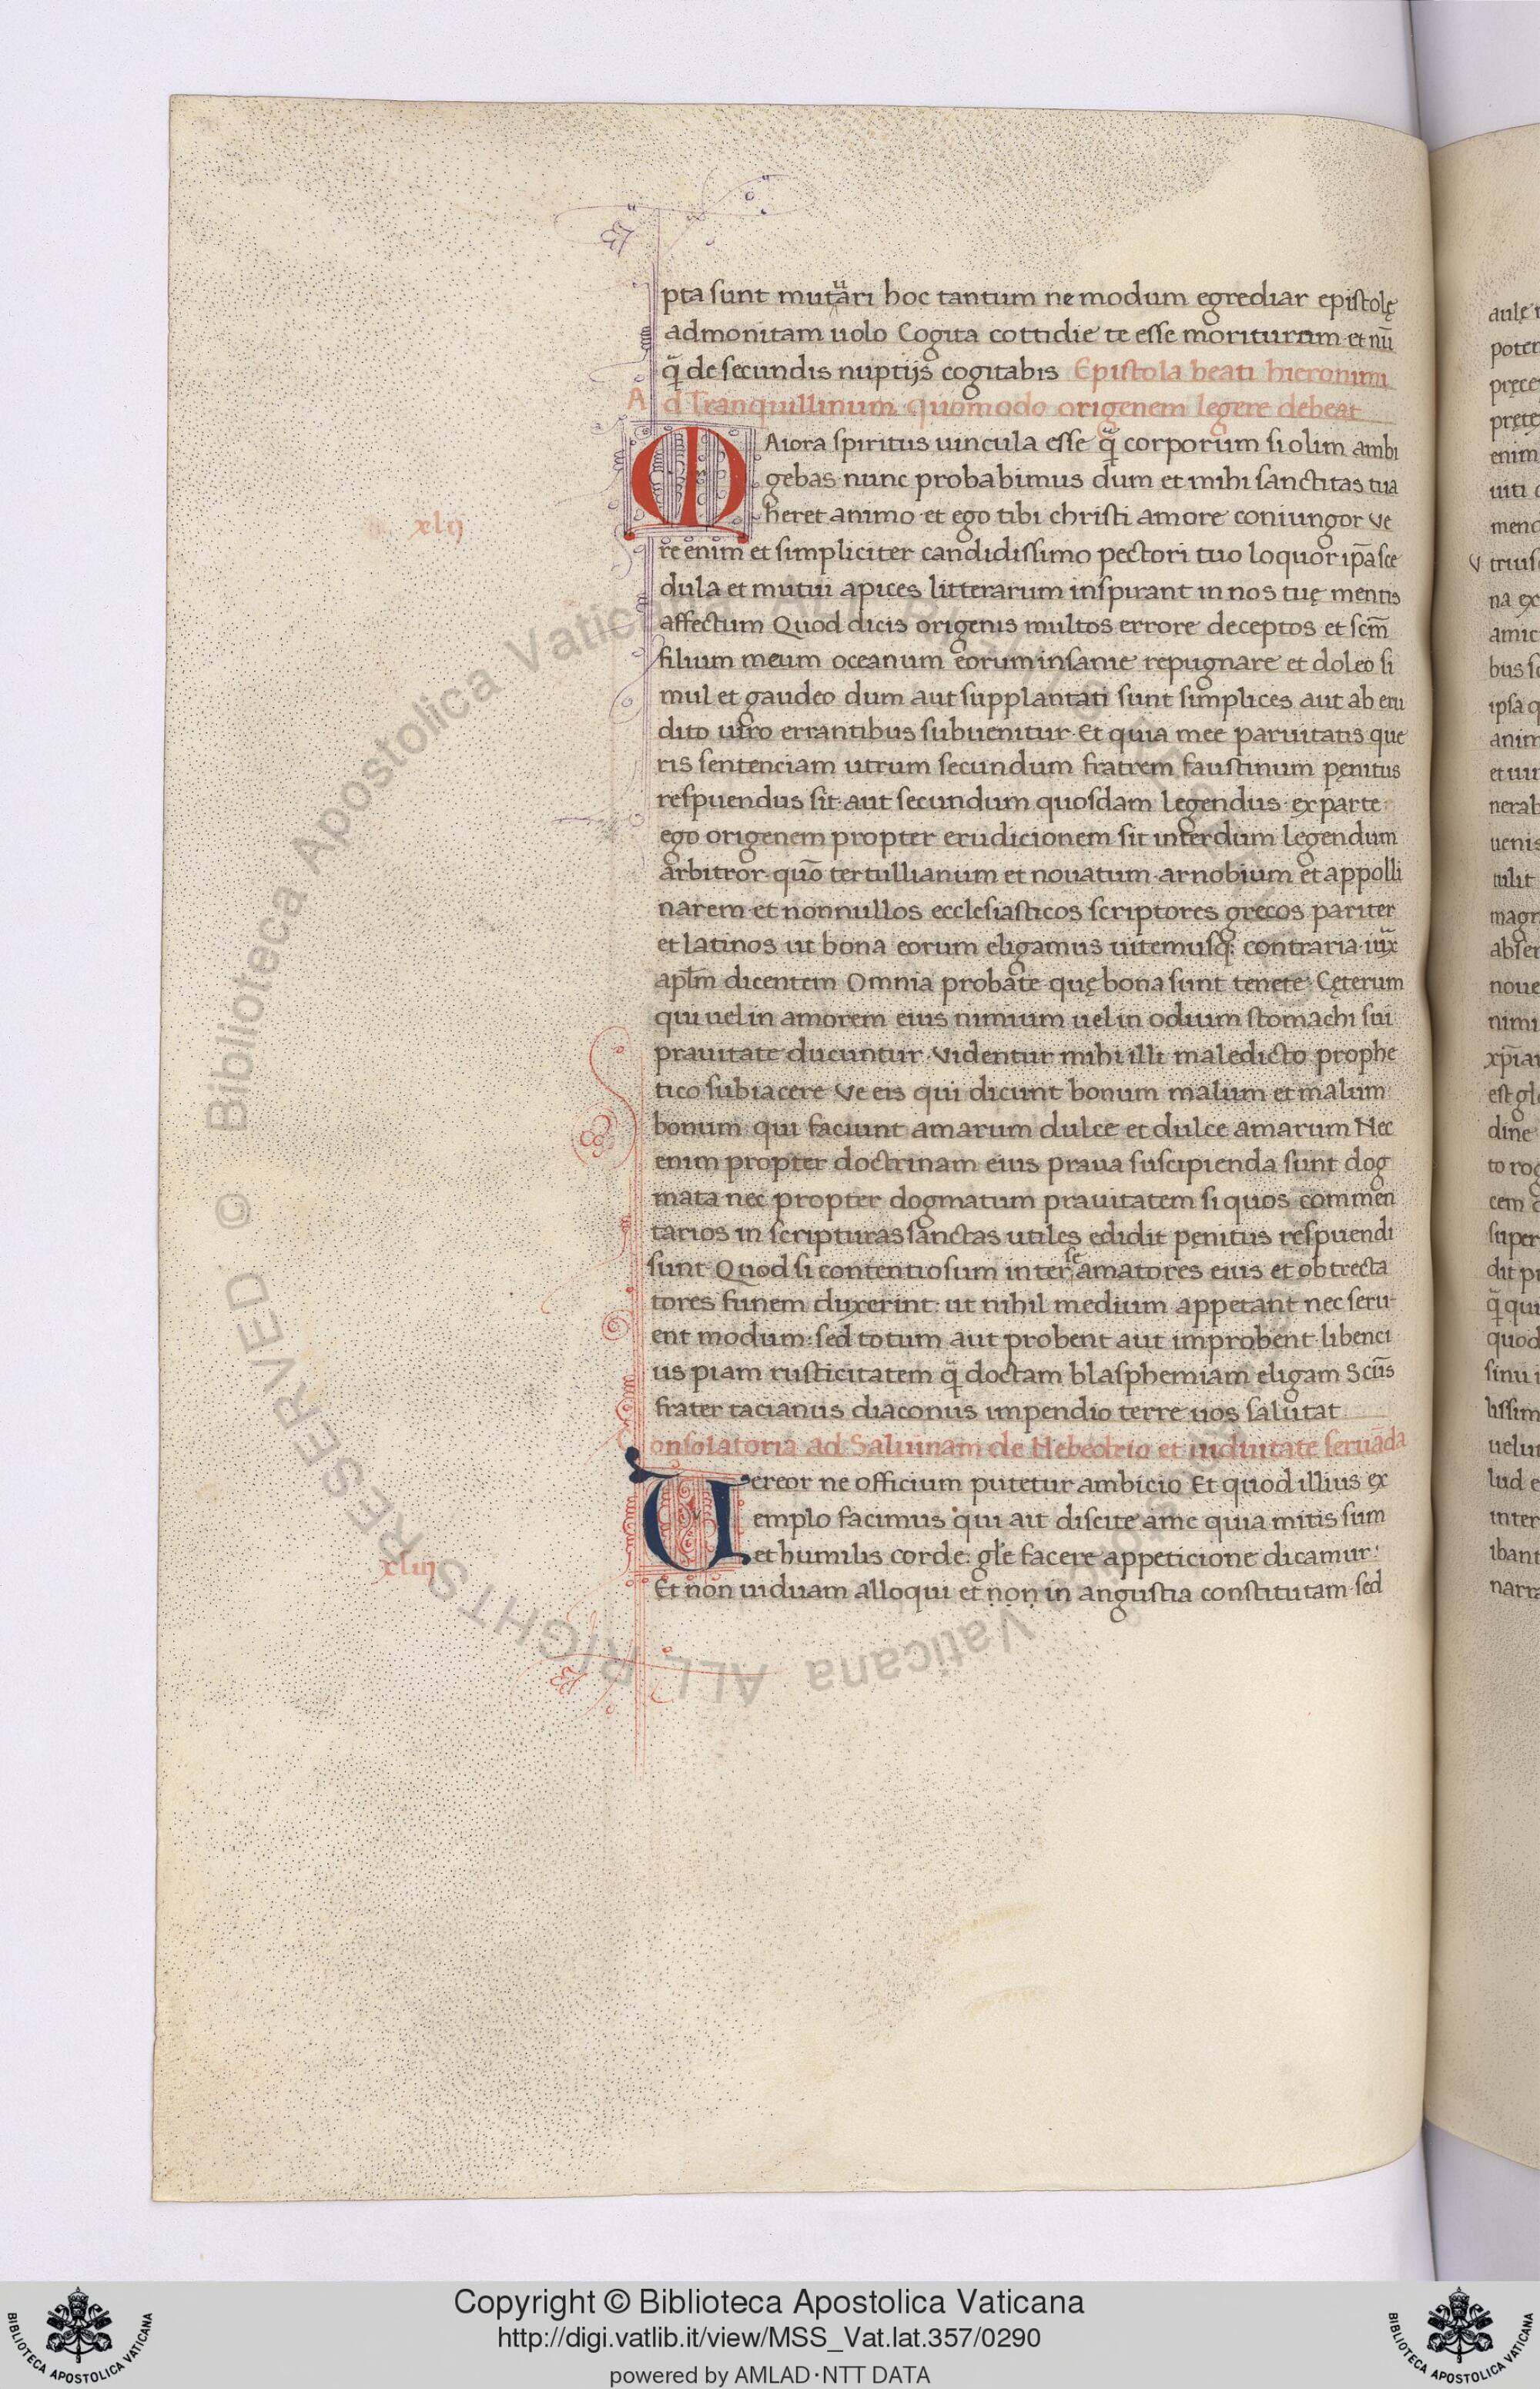 pta sunt mutari hoc tantum ne modum egrediar epistolę
admonitam uolo Cogita cottidie te esse morituram et nū
q̄ de secundis nuptijs cogitabis Epistola beati hieronimi
Ad Tranquillinum quomodo origenem legere debeat
MAiora spiritus uincula esse q̄ corporum si olim ambi
gebas nunc probabimus dum et mihi sanctitas tua
heret animo et ego tibi christi amore coniungor Ve
xlij
re enim et simpliciter candidissimo pectori tuo loquor ip̄a sce
dula et mutui apices litterarum inspirant in nos tuę mentis
affectum Quod dicis origenis multos errore deceptos et scm̄
filium meum oceanum eorum insanie repugnare et doleo si
mul et gaudeo dum aut supplantati sunt simplices aut ab eru
dito uiro errantibus subuenitur. Et quia mee paruitatis que
ris sentenciam utrum secundum fratrem faustinum pęnitus
respuendus sit. aut secundum quosdam legendus ex parte
ego origenem propter erudicionem sit interdum legendum
arbitror quō tertullianum et nouatum arnobium et appolli
narem et nonnullos ecclesiasticos scriptores grecos pariter
et latinos ut bona eorum eligamus uitemusq; contraria iux̄
apl̄m dicentem Omnia probate quę bona sunt tenete Cęterum
qui uel in amorem eius nimium uel in odium stomachi sui
prauitate ducuntur. Videntur mihi illi maledicto prophe
tico subiacere Ve eis qui dicunt bonum malum et malum
bonum qui faciunt amarum dulce et dulce amarum Nec
enim propter doctrinam eius praua suscipienda sunt dog
mata nec propter dogmatum prauitatem si quos commen
tarios in scripturas sanctas utiles edidit pęnitus respuendi
sunt Quod si contentiosum inter se amatores eius et obtrecta
tores funem duxerint: ut nihil medium appetant nec seru
ent modum: sed totum aut probent aut improbent. libenci
us piam rusticitatem q̄ doctam blasphemiam eligam Scūs
frater tacianus diaconus impendio terre uos salutat
Consolatoria ad Saluinam de Nebeobrio et uiduitate seruāda
Uereor ne officium putetur ambicio Et quod illius ex
emplo facimus qui ait discite ame quia mitis sum
et humilis corde. gl̄e facere appeticione dicamur:
xliij
Et non uiduam alloqui et non in angustia constitutam. sed
Copyright © Biblioteca Apostolica Vaticana
http://digi.vatlib.it/view/MSS_Vat.lat.357/0290
powered by AMLAD·NTT DATA